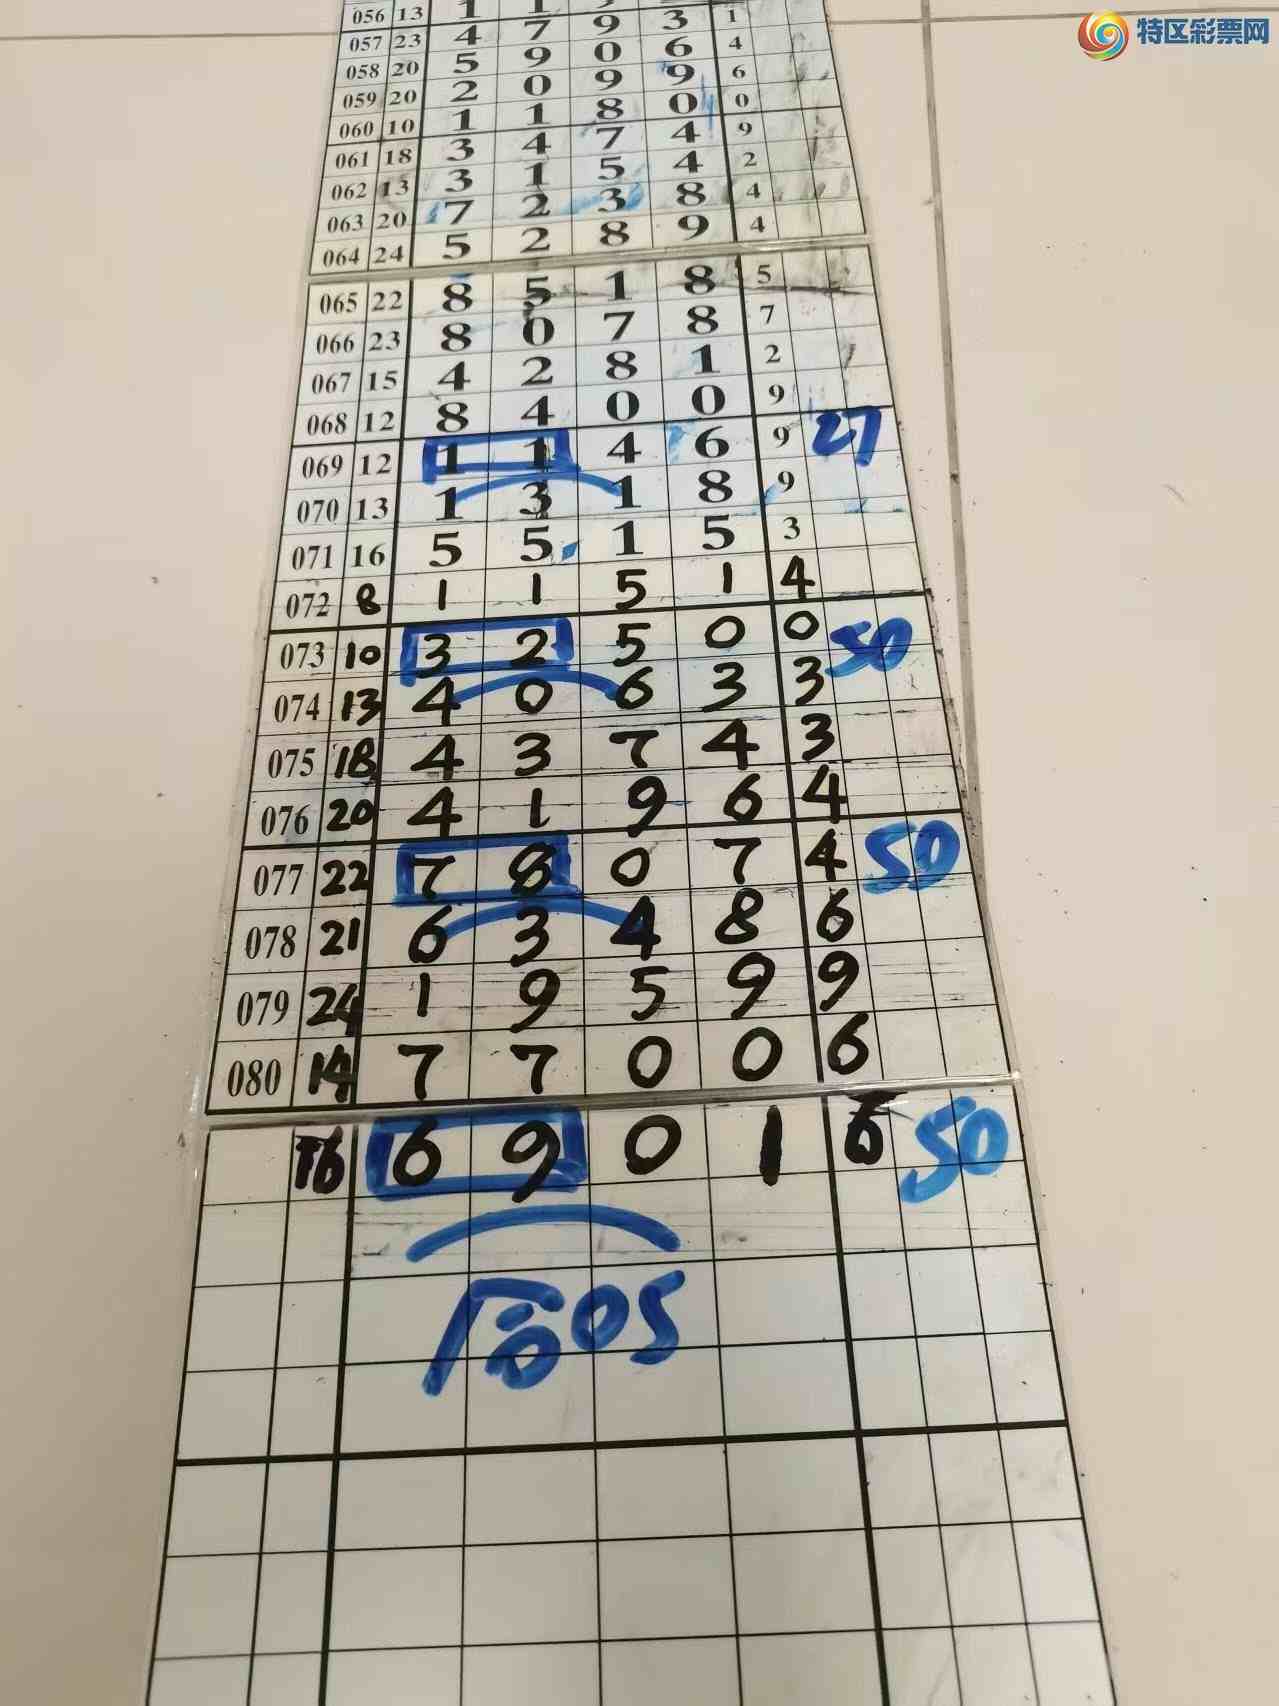 特区彩票网
056 13 1 1 3 1
057 23 4 7 9 3 1
058 20 5 9 0 6 4
059 20 2 0 9 9 6
060 10 1 1 8 0 0
061 18 3 4 7 4 9
062 13 3 1 5 4 2
063 20 7 2 3 8 4
064 24 5 2 8 9 4
065 22 8 5 1 8 5
066 23 8 0 7 8 7
067 15 4 2 8 1 2
068 12 8 4 0 0 9
069 12 1 1 4 6 9 27
070 13 1 3 1 8 9
071 16 5 5 1 5 3
072 8 1 1 5 1 4
073 10 3 2 5 0 0 50
074 13 4 0 6 3 3
075 18 4 3 7 4 3
076 20 4 1 9 6 4
077 22 7 8 0 7 4 50
078 21 6 3 4 8 6
079 24 1 9 5 9 9
080 14 7 7 0 0 6
16 6 9 0 1 6 50
合05